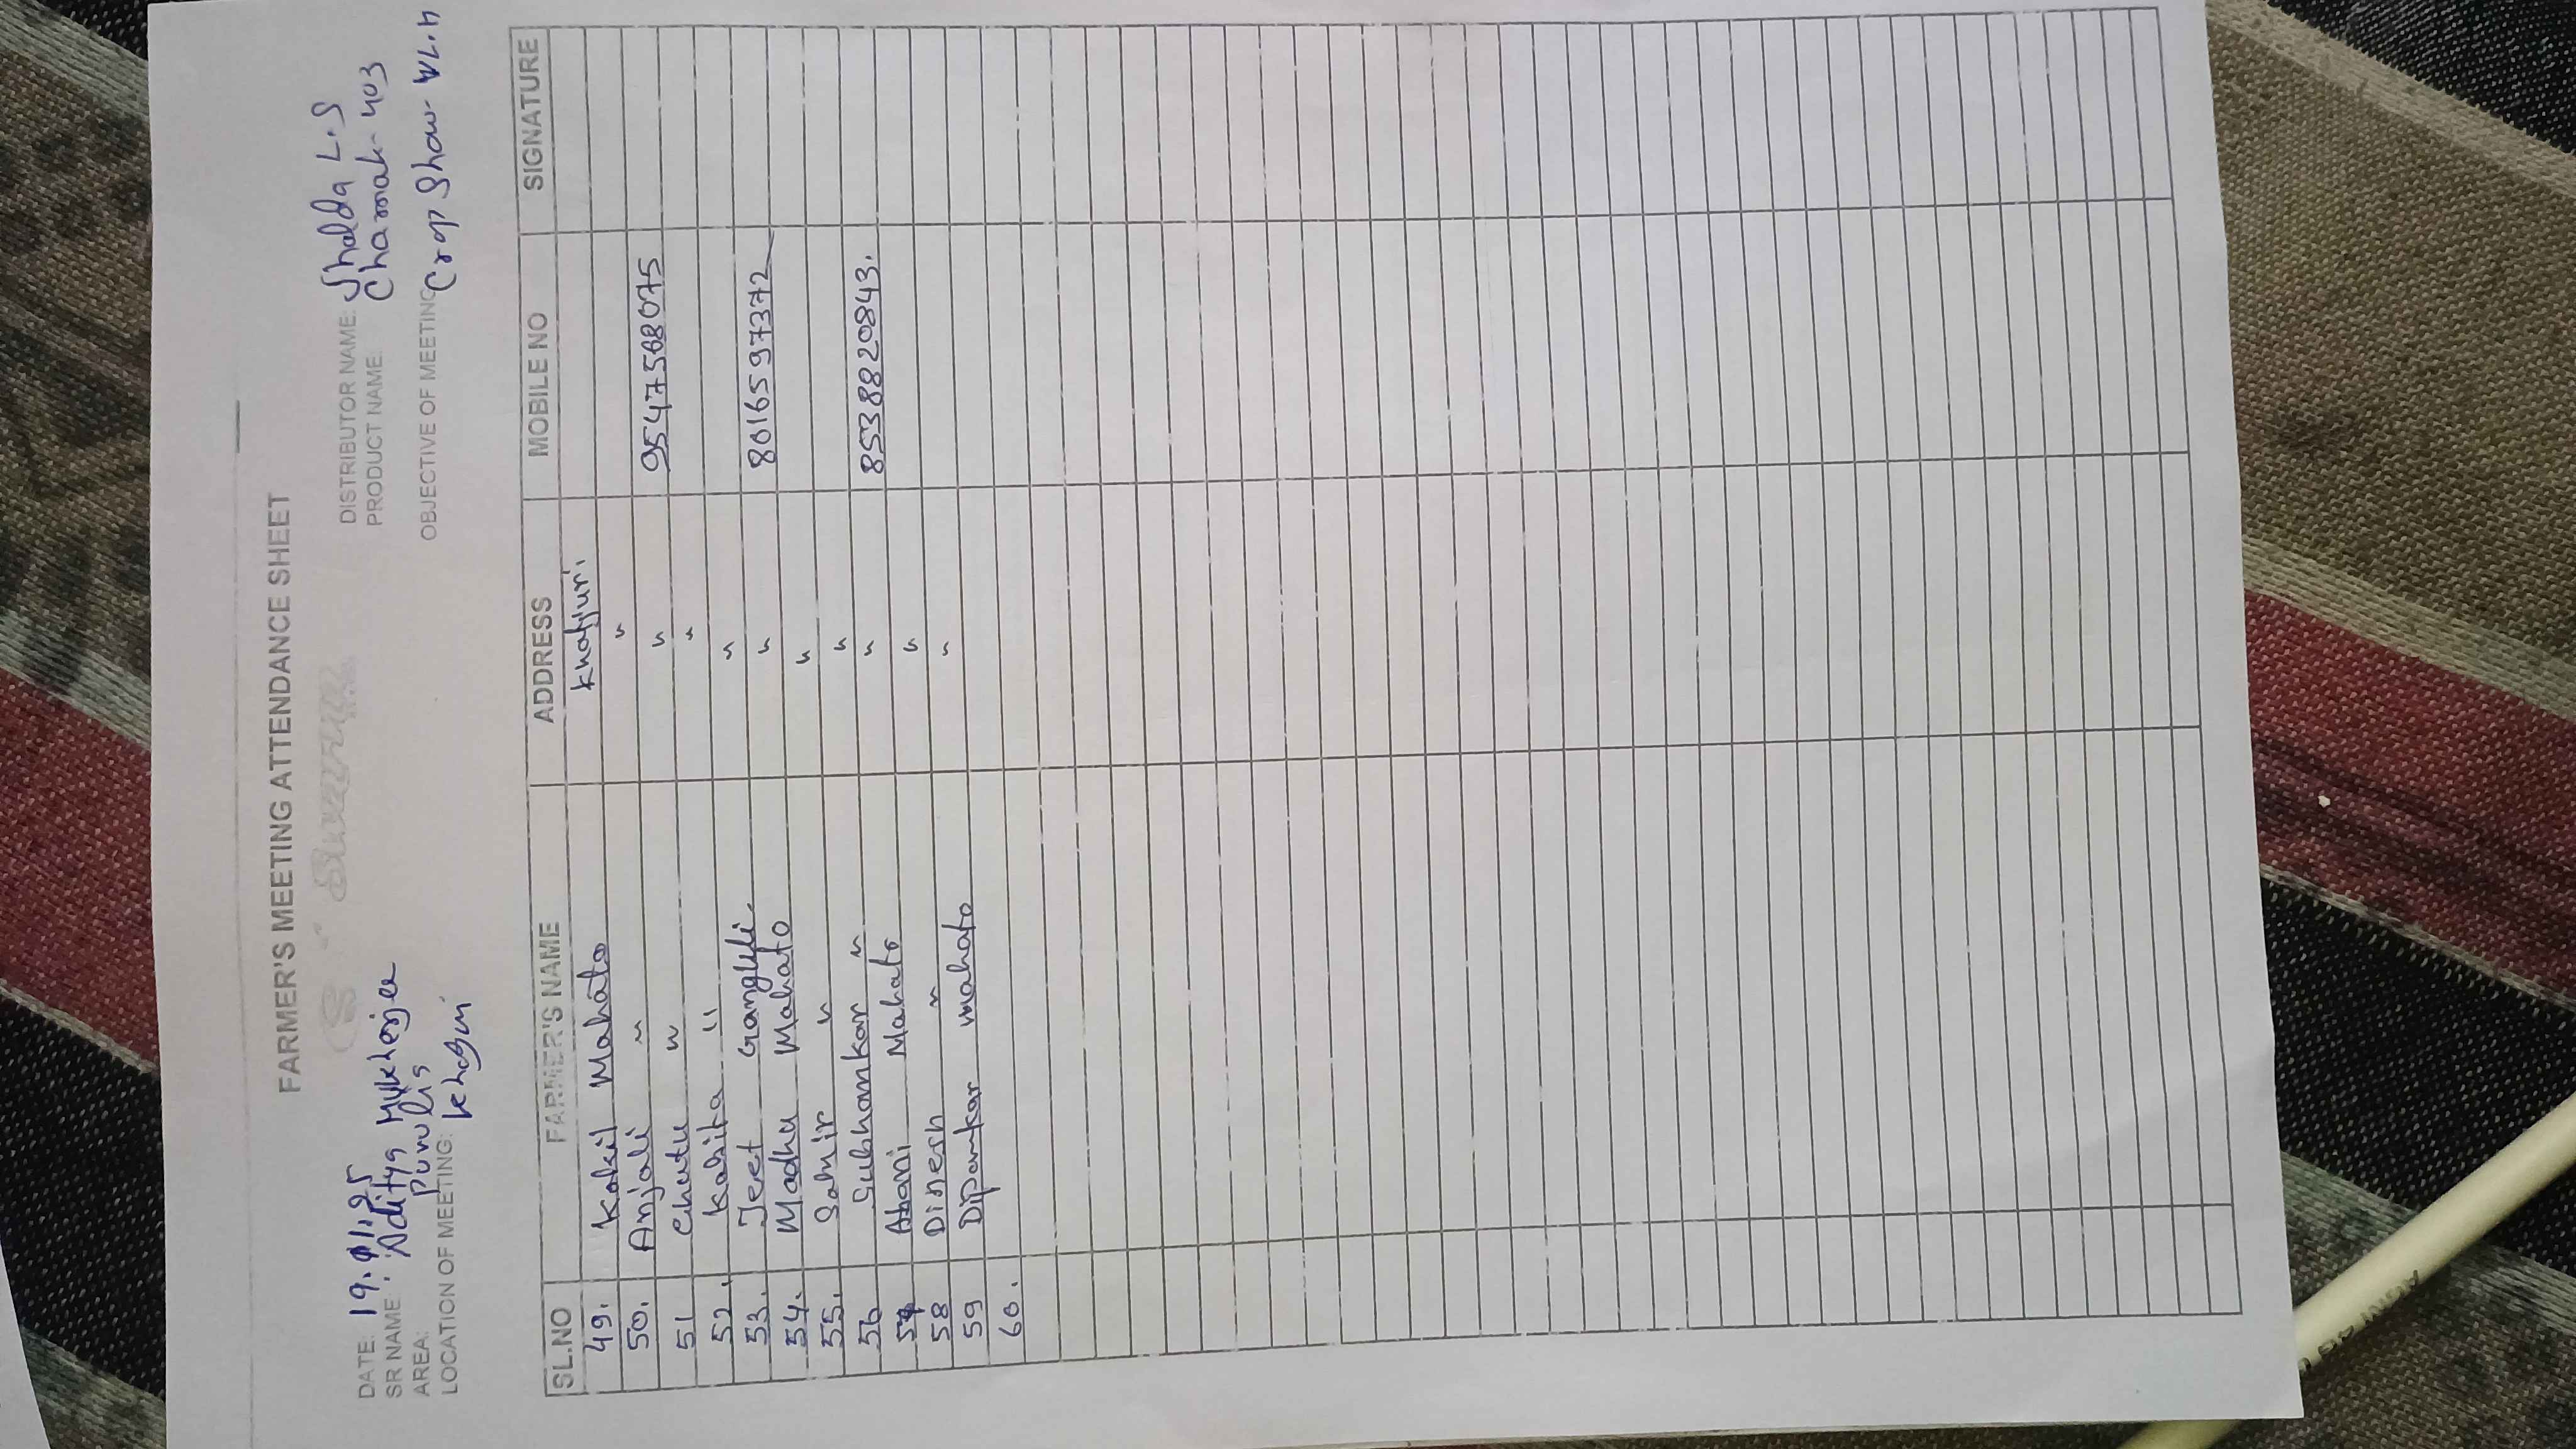 FARMER'S MEETING ATTENDANCE SHEET
DATE: 19.11.25 DISTRIBUTOR NAME: Jhalda L.S
SR NAME: Aditya Mukherjee PRODUCT NAME: Chamak-403
AREA: Purulia
LOCATION OF MEETING: Khajuri OBJECTIVE OF MEETING: Crop Show
SL.NO FARMER'S NAME ADDRESS MOBILE NO SIGNATURE
49. Mahato Khajuri
50. Anjali " "
51 Chutu " " 9547588075
52. Kabita " "
53. Jeet Ganguli. "
54. Madhu Mahato " 8016597372
55. Samir " "
56 Subhamkar " "
57 Mahato " 8538820843.
58 Dinesh " "
59 Dipankar Mahato "
60.